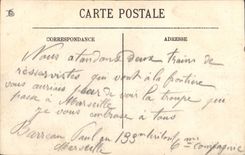 CARTE POSTALE
CORRESPONDANCE
ADRESSE
Nous atandons deux trains de
réservistes qui vont à la frontière
vous auriez peur de voir la troupe qui
passe à Marseille
je vous embrasse à tous
Barreau Paul en 133 territorial 6me Compagnie
Marseille